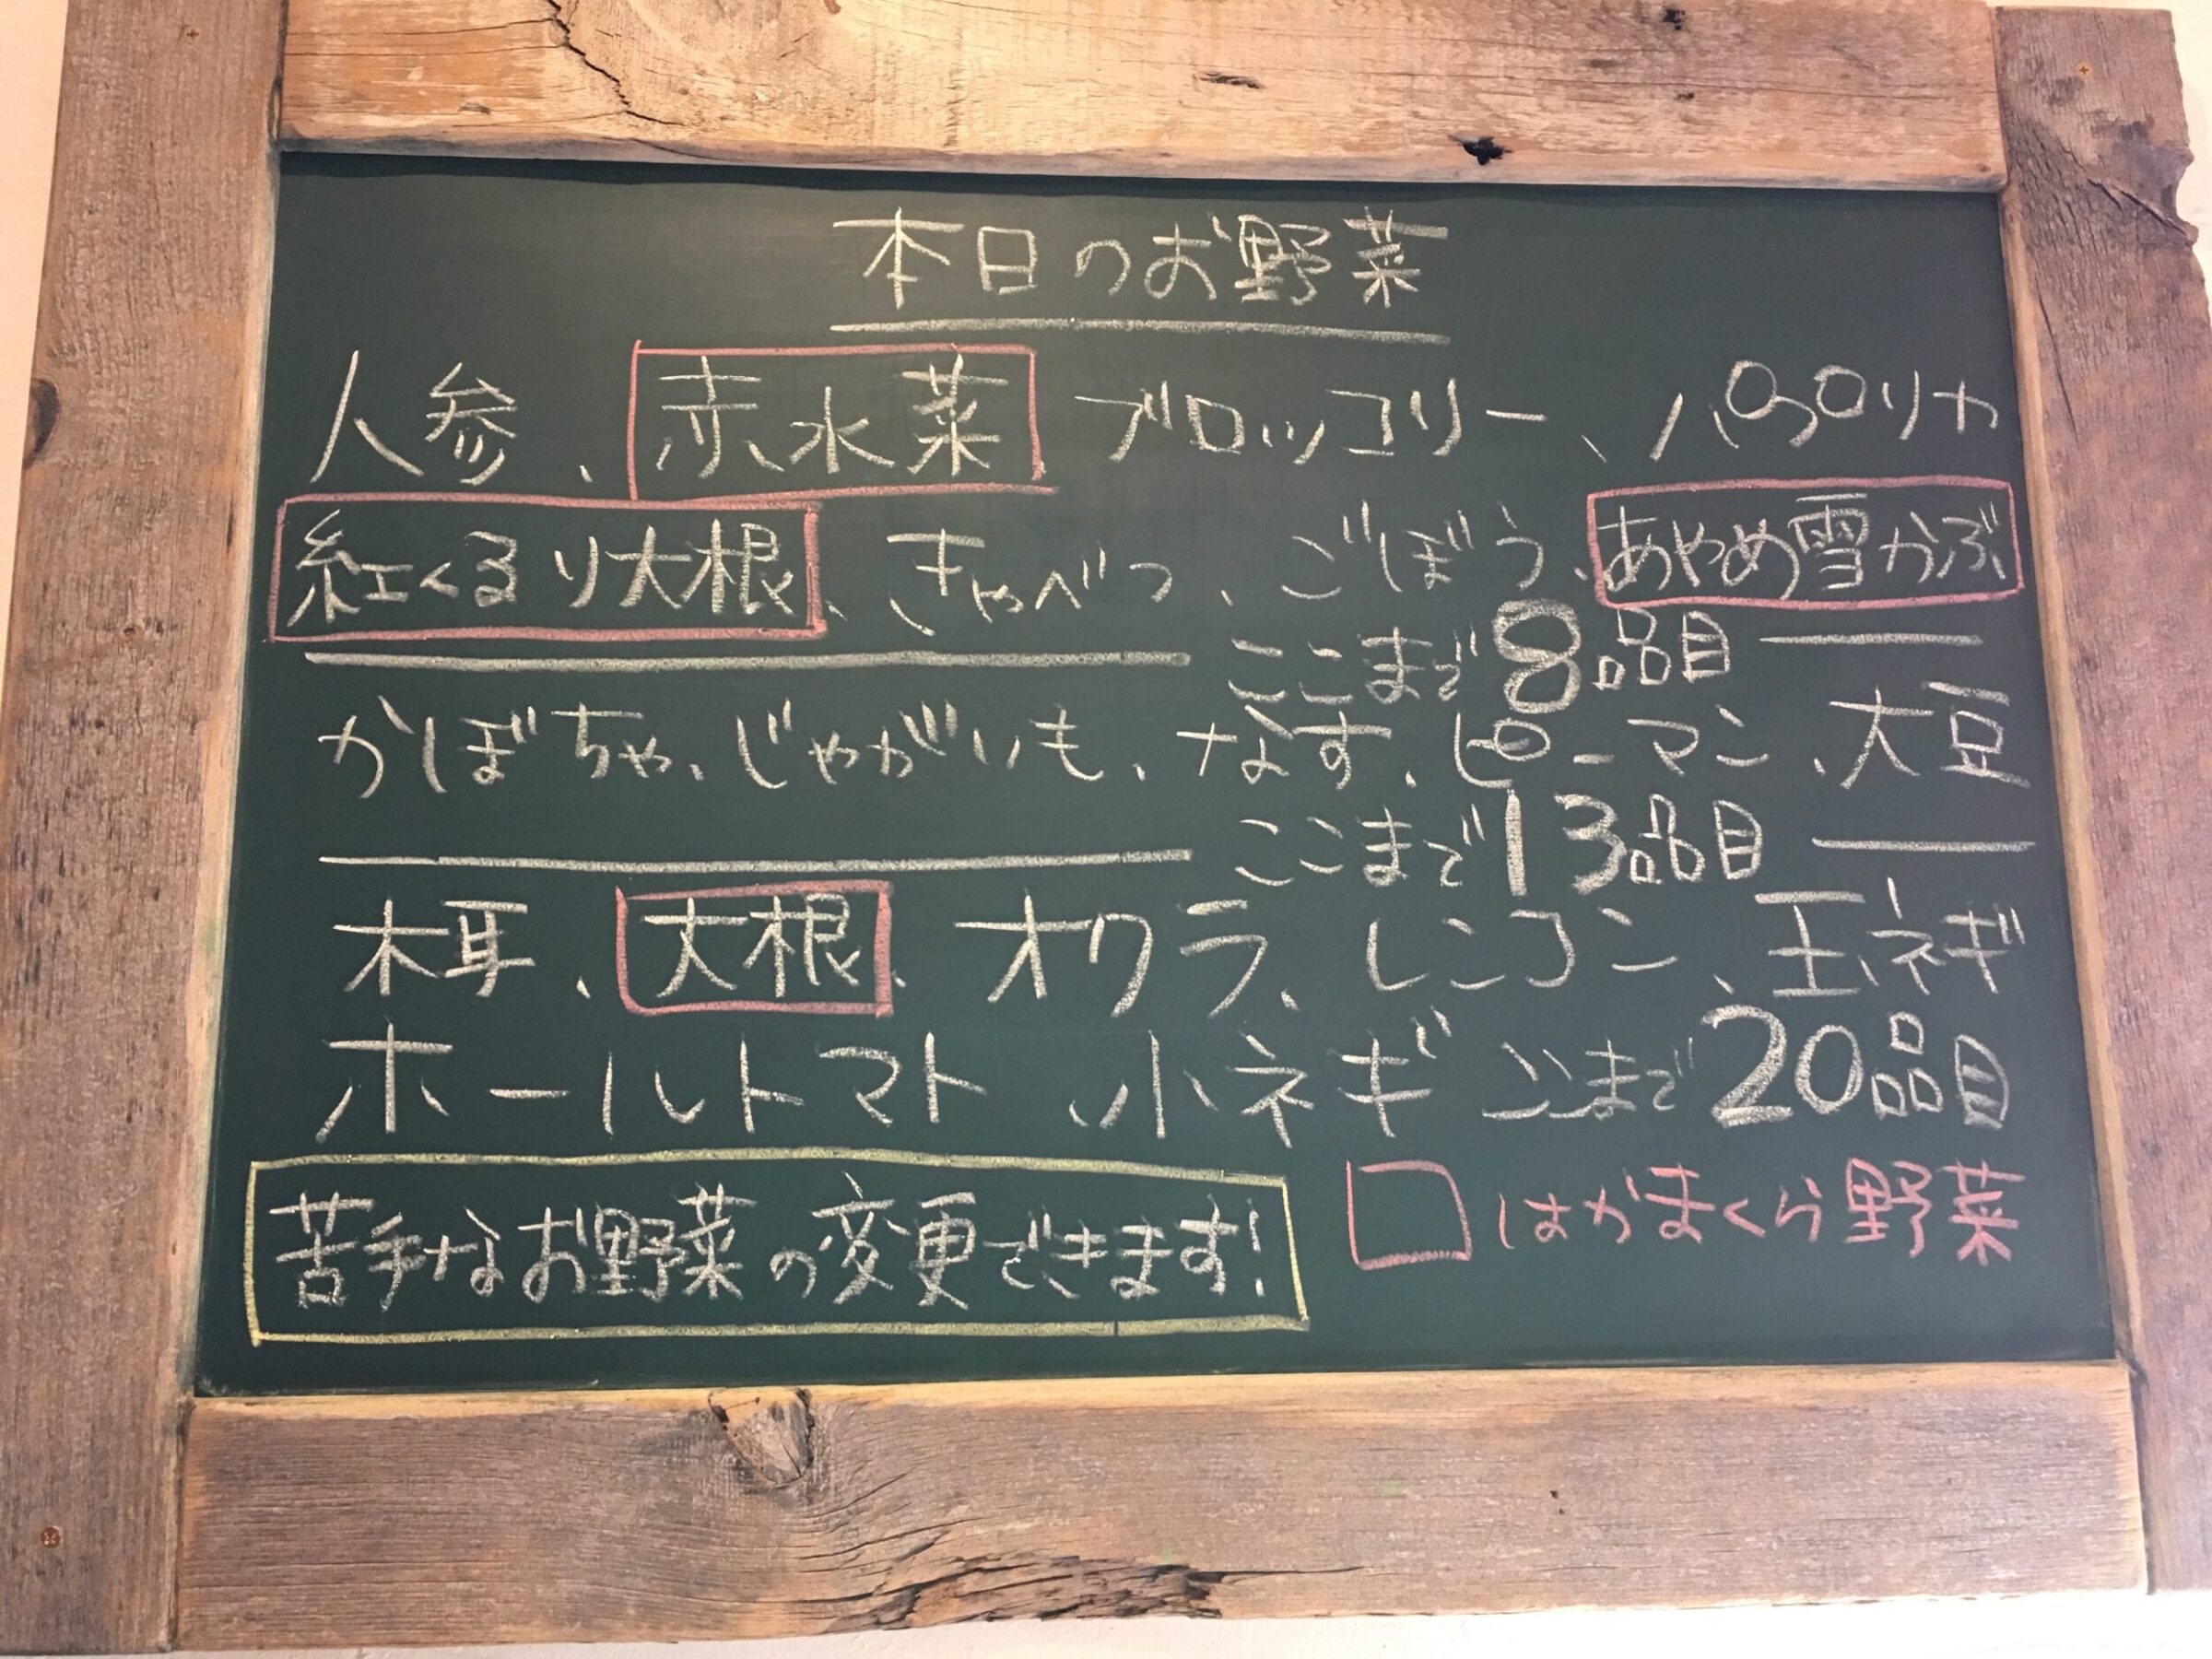 本日のお野菜
人参、赤水菜 ブロッコリー、パプリカ
紅くるり大根、きゃべつ、ごぼう、あやめ雪かぶ
ここまで8品目
かぼちゃ、じゃがいも、なす、ピーマン、大豆
ここまで13品目
木耳、大根、オクラ、レンコン、玉ネギ
ホールトマト、小ネギ ここまで20品目
苦手なお野菜の変更できます!
□はかまくら野菜